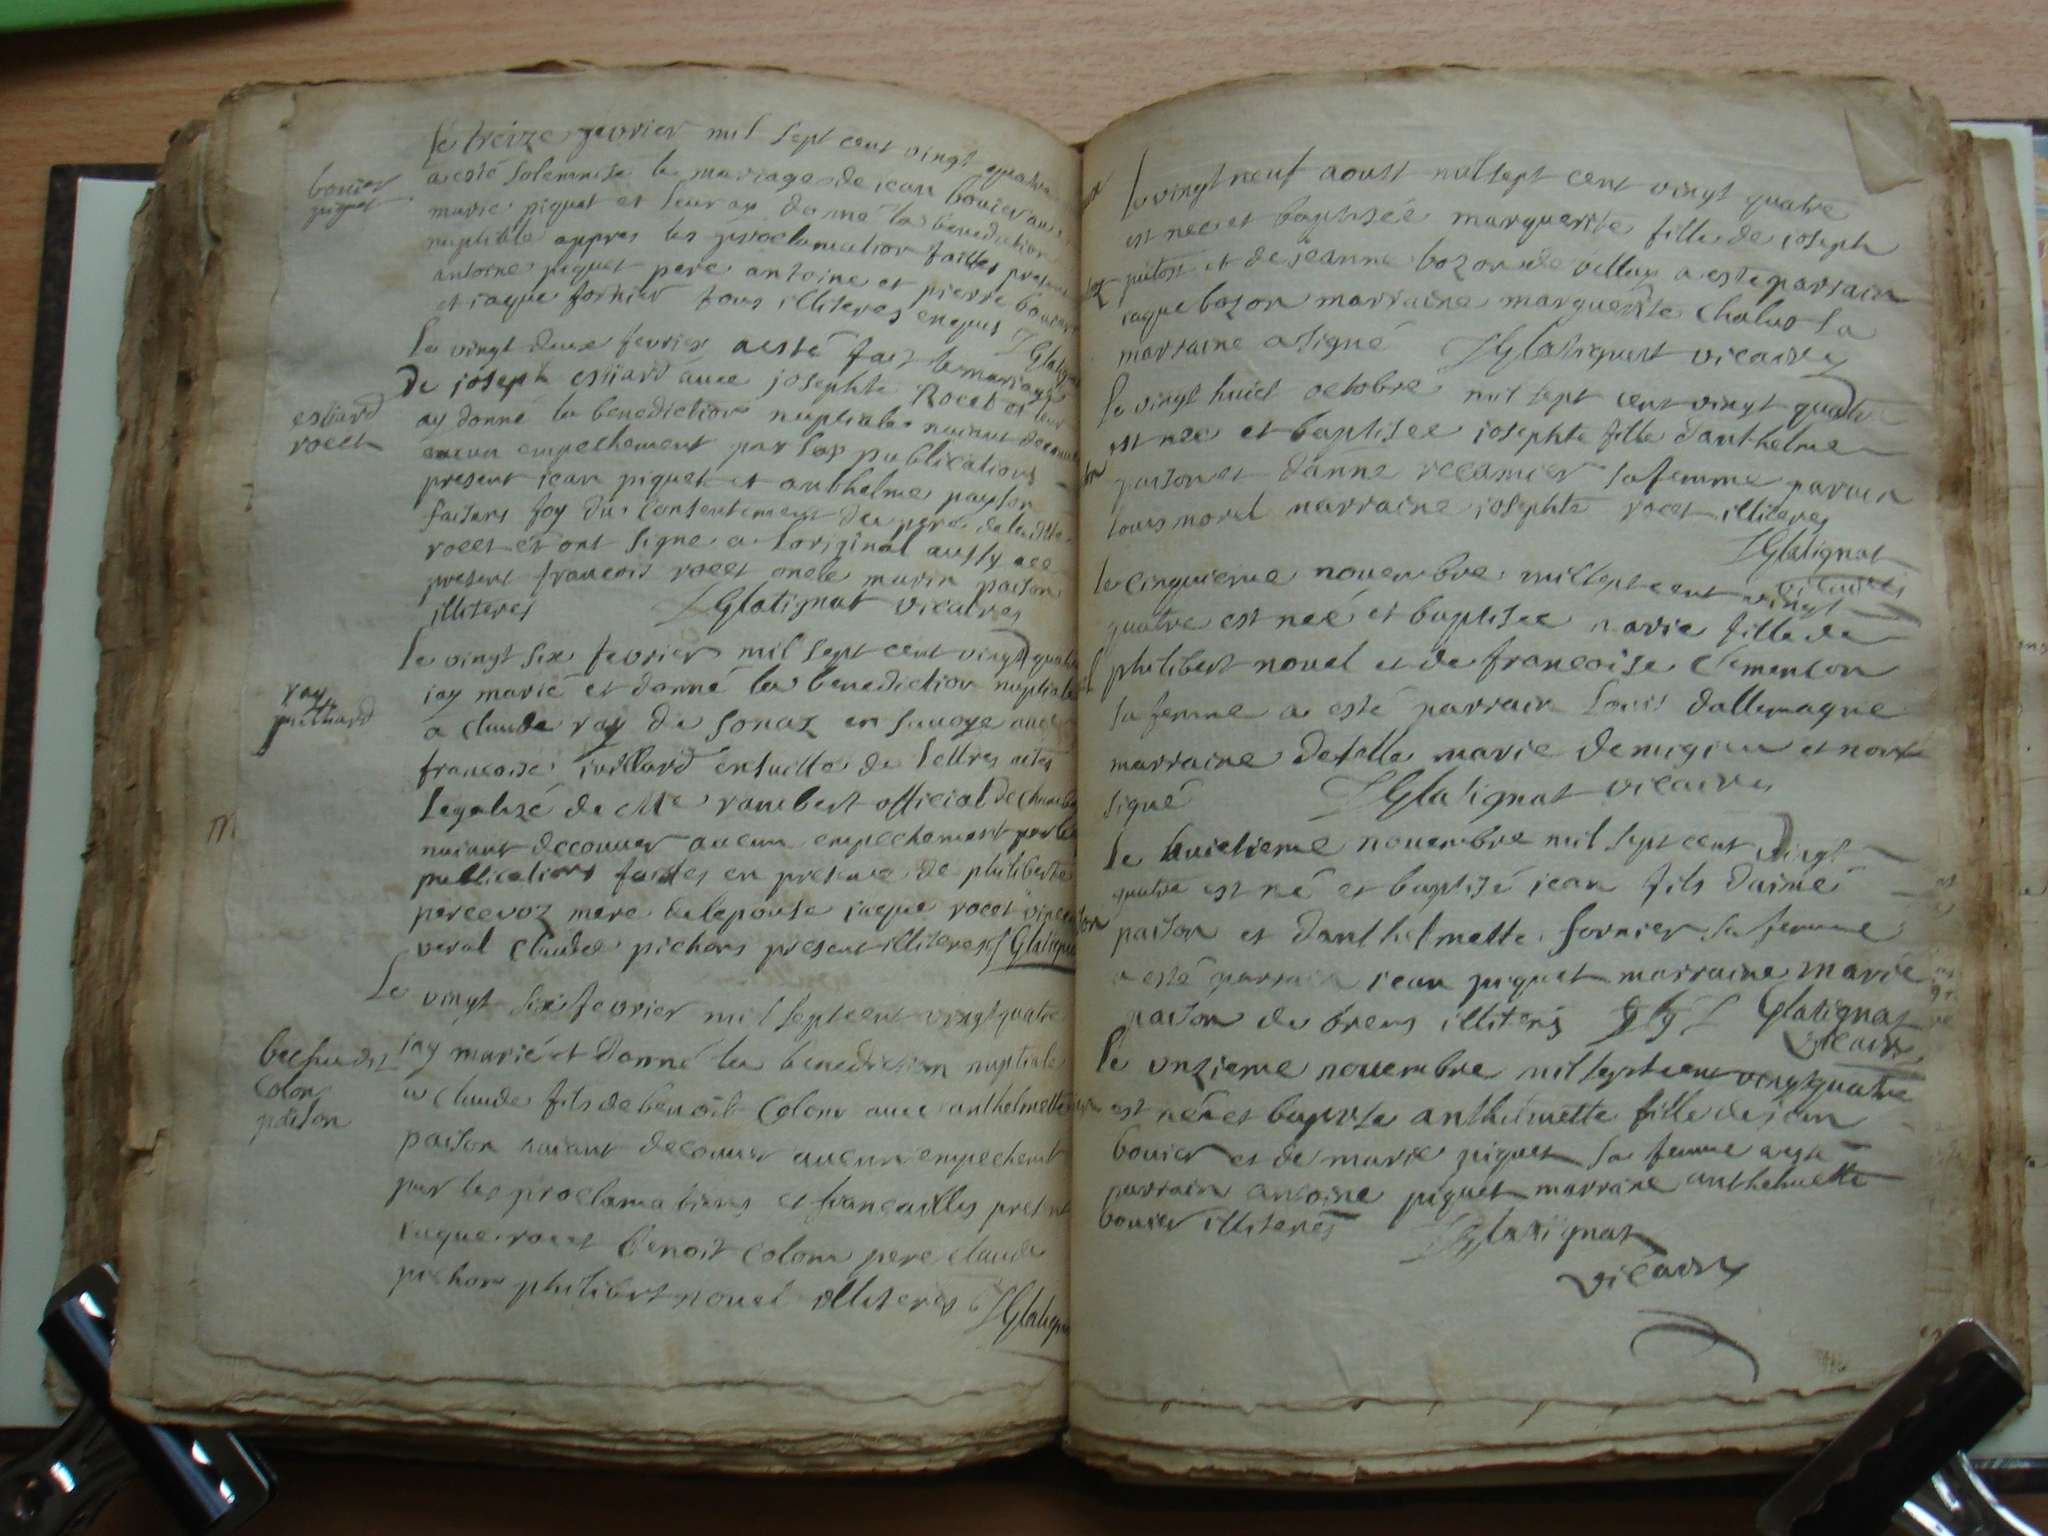 le treize fevrier mil sept cent vingt quatre
a esté solemnise le mariage de jean bouier avec
bouier
piquet
marie piquet et leur ay donné la benediction
nuptiale appres les proclamation faittes present
antoine piquet pere antoine et pierre bouier
et iaque fornier tous illiteres enquis
JGlatignat
le vingt deux fevrier a esté fait le mariage
De joseph estiard avec josephte Rocet et leur
estiard
rocet
ay donné la benediction nuptiale naiant decouuert
aucun empechement par les publications
present jean piquet et anthelme payson
faisans foy du consentement du pere de laditte
rocet et ont signe a l'original aussy
present francois rocet oncle marin paison
illiteres JGlatignat vicaires
le vingt six fevrier mil sept cent vingt quatre
iay marié et donné la benediction nuptiale
ray
juilliard
a claude ray de sonaz en savoye avec
francoise juilliard ensuitte de lettres
legalizé de Me rambert official de
naiant decouuer aucun empechement par les
publications faites en presence de philiberte
percevoz mere de lepouse iaque rocet
veral claude pichons present illiteres JGlatignat
Le vingt six fevrier mil sept cent vingt quatre
iay marié et donné la benediction nuptiale
colon
paison
a claude fils de benoit colom avec anthelmette
paison naiant decouuer aucun empechemt
par les proclamations et fiancailles present
iaque rocet benoit colom pere claude
pichon philibert nouel illiteres JGlatignat
le vingt neuf aoust mil sept cent vingt quatre
est nee et baptisée marguerite fille de joseph
et de jeanne bozon de a esté parrain
iaque bozon marraine marguerite chalus la
marraine a signé JGlatignat vicaires
le vingt huict octobre mil sept cent vingt quatre
est nee et baptisee josephte fille danthelme
paison et danne recamier sa femme parain
louis norel marraine josephte rocet illiteres
JGlatignat
vicaires
le cinquieme nouembre mil sept cent vingt
quatre est neé et baptisee marie fille de
philibert nouel et de francoise clemencon
sa femme a esté parrain louis dallemagne
marraine delle marie demigieu et nont
signé JGlatignat vicaires
le huictieme nouembre mil sept cent vingt
quatre est né et baptisé jean fils daimé
paison et danthelmette fornier sa femme
a esté parrain jean piquet marraine marie
paison de brens illiterés JGlatignat
vicaire
le onzieme nouembre mil sept cent vingt quatre
est née et baptise anthelmette fille de jean
bouier et de marie piquet sa femme a esté
parrain antoine piquet marraine anthelmette
bouier illiterés JGlatignat
vicaires